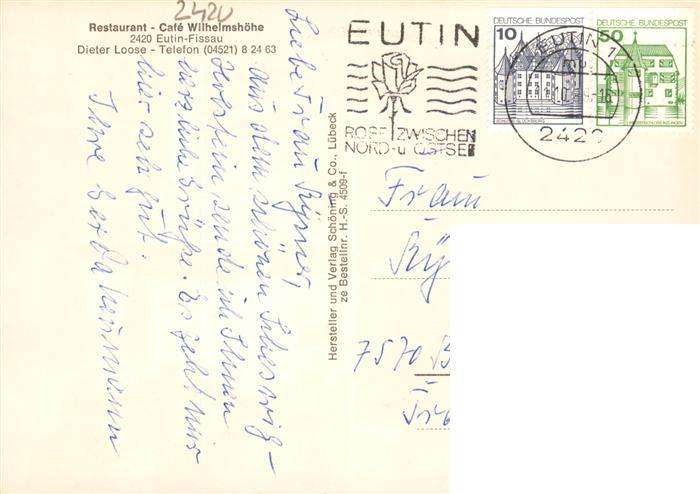 2420
Restaurant - Café Wilhelmshöhe
2420 Eutin-Fissau
Dieter Loose - Telefon (04521) 8 24 63
Liebe Frau
aus dem schönen Schleswig-
Holstein sende ich Ihnen
herzliche Grüße. Es geht mir
hier sehr gut.
Ihre Gerda
Hersteller und Verlag Schöning & Co., Lübeck
ze Bestellnr. H.-S. 4509-f
EUTIN
ROSE ZWISCHEN
NORD- u OSTSEE
DEUTSCHE BUNDESPOST
10
SCHLOSS GLÜCKSBURG
DEUTSCHE BUNDESPOST
50
EUTIN 1
2420
Frau
7570 B